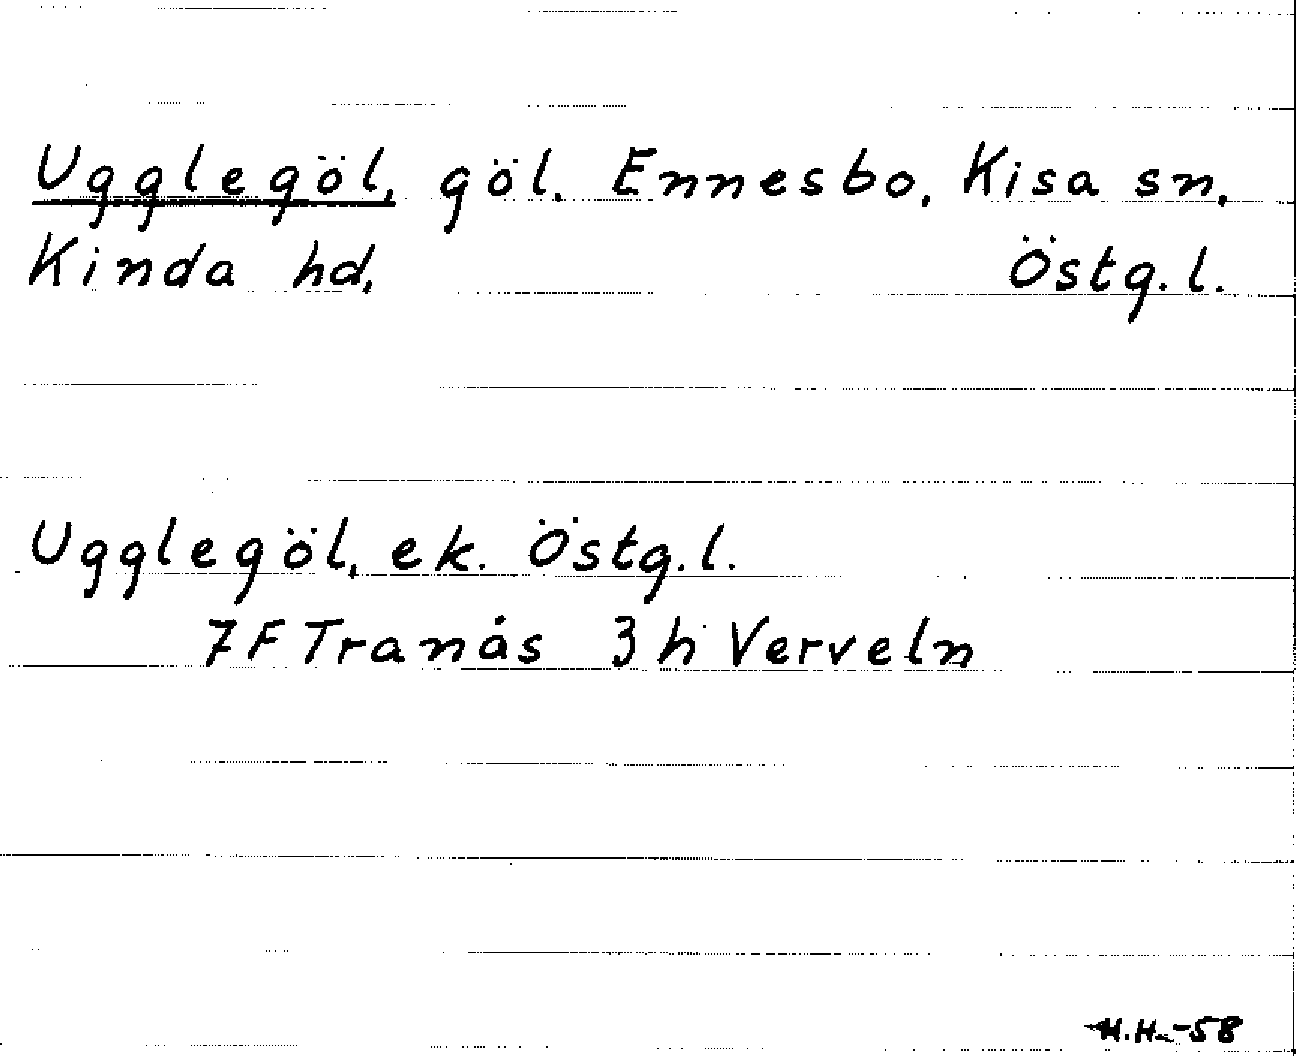 Ugglegöl, göl, Ennesbo, Kisa sn,
Kinda hd, Östg. l.
Ugglegöl, ek. Östg. l.
7F Tranås 3h Verveln
H.H.-58